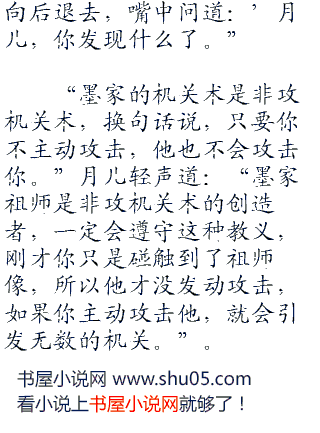 向后退去，嘴中问道：’月
儿，你发现什么了。”
“墨家的机关术是非攻
机关术，换句话说，只要你
不主动攻击，他也不会攻击
你。”月儿轻声道：“墨家
祖师是非攻机关术的创造
者，一定会遵守这种教义，
刚才你只是碰触到了祖师
像，所以他才没发动攻击，
如果你主动攻击他，就会引
发无数的机关。”。
书屋小说网 www.shu05.com
看小说上书屋小说网就够了！